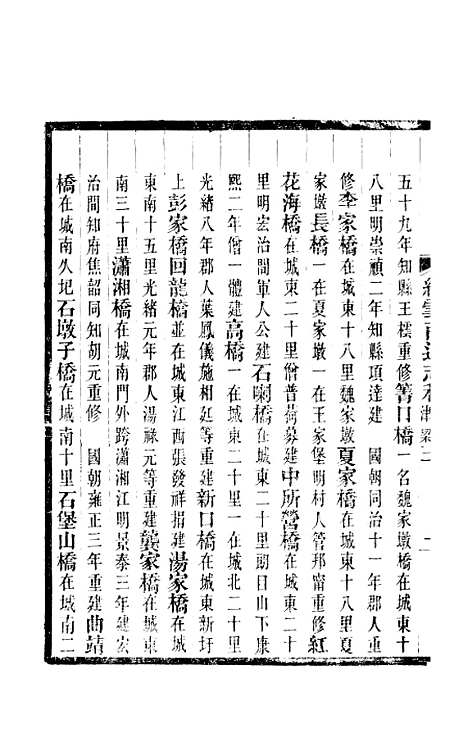 五十九年知縣王檽重修菁口橋一名魏家墩橋在城東十
八里明崇禎二年知縣項達建　國朝同治十一年郡人重
修李家橋在城東十八里魏家墩夏家橋在城東十八里夏
家墩長橋一在夏家墩一在王家堡明村人管邦甯重修紅
花海橋在城東二十里僧普荷募建中所營橋在城東二十
里明宏治間軍人公建石喇橋在城東二十里朗目山下康
熙二年僧一體建高橋一在城東二十里一在城北二十里
光緒八年郡人葉鳳儀施相廷等重建新口橋在城東新圩
上彭家橋回龍橋並在城東江西張發祥捐建湯家橋在城
東南十五里光緒元年郡人湯祿元等重建龔家橋在城東
南三十里瀟湘橋在城南門外跨瀟湘江明景泰三年建宏
治間知府焦韶同知胡元重修　國朝雍正三年重建曲靖
橋在城南久圮石墩子橋在城南十里石堡山橋在城南二
續雲南通志稿